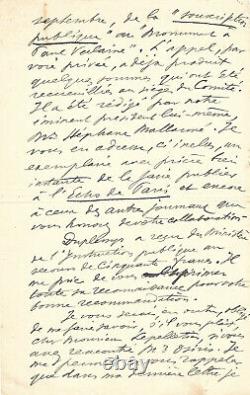 septembre, de la "souscription
publique" au Monument à
Paul Verlaine". L'appel, par
voie privée, a déjà produit
quelques sommes qui ont été
recueillies au siège du Comité.
Il a été rédigé par notre
éminent président lui-même,
Mr Stéphane Mallarmé. Je
vous en adresse, ci-inclus, un
exemplaire avec prière ins-
tante de le faire publier
à l'Echo de Paris et encore
à ceux des autres journaux que
vous honorez de votre collaboration.
Duplessys a reçu du Ministère
de l'Instruction publique un
secours de Cinquante francs. Il
me prie de vous exprimer
toute sa reconnaissance pour votre
bonne recommandation.
Je vous serai, en outre, obligé
de me faire savoir, s'il vous plaît,
cher Monsieur Lepelletier, si vous
avez rencontré Mr Osiris. Je
me permets de vous rappeler
que dans ma dernière lettre je